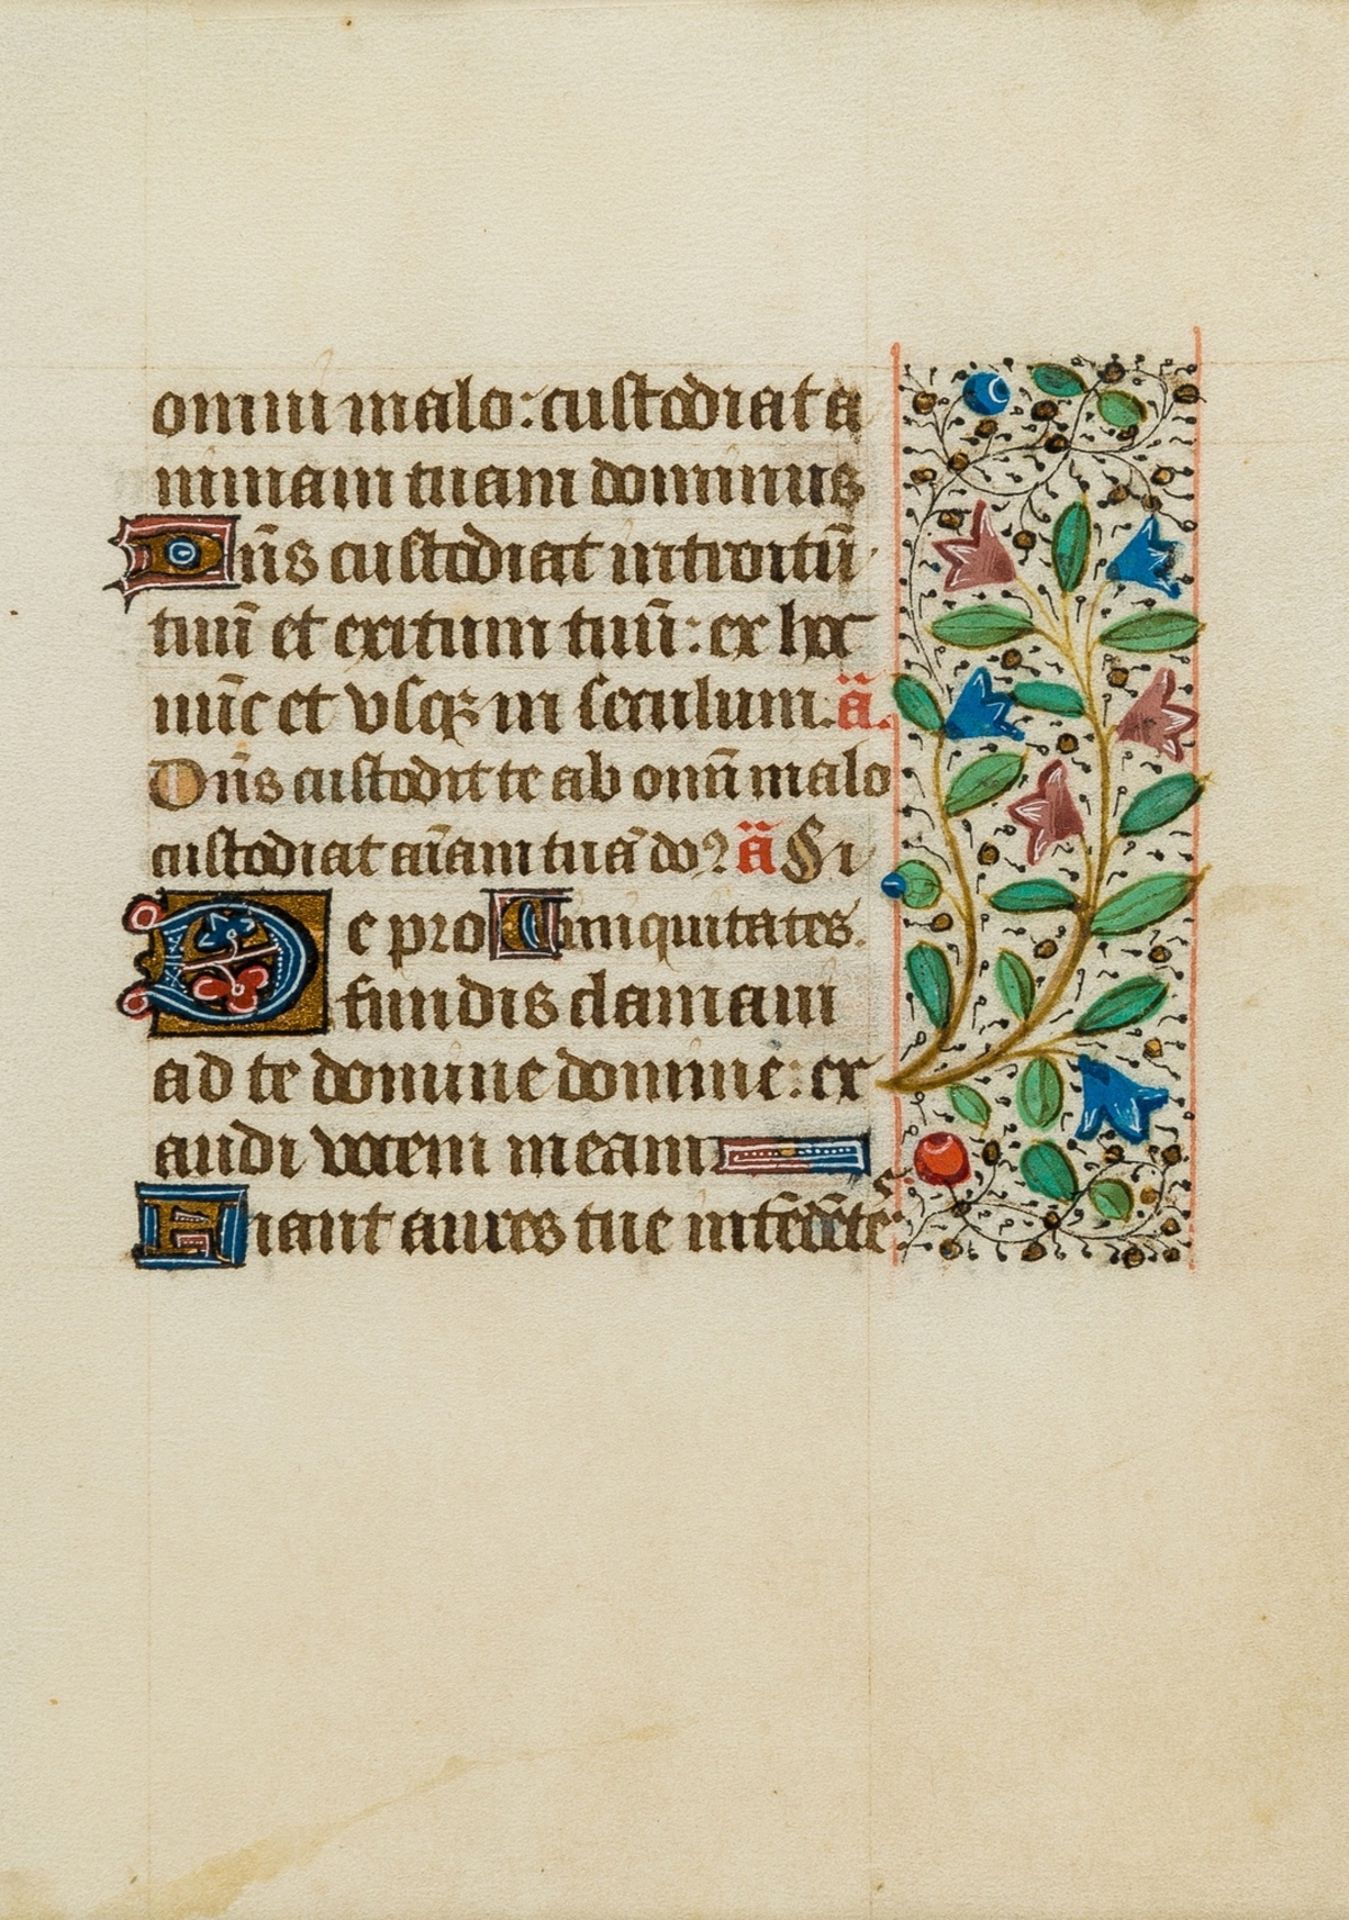 omni malo: custodiat a
nimam tuam dominus
Dn̄s custodiat introitū
tuū et exitum tuū: ex hoc
nūc et vsqꝫ in seculum. ā.
Dn̄s custodit te ab omī malo
custodiat aīam tuā do? ā Si
De pro iniquitates.
fundis clamaui
ad te domine domine: ex
audi vocem meam
Fiant aures tue intēdētes